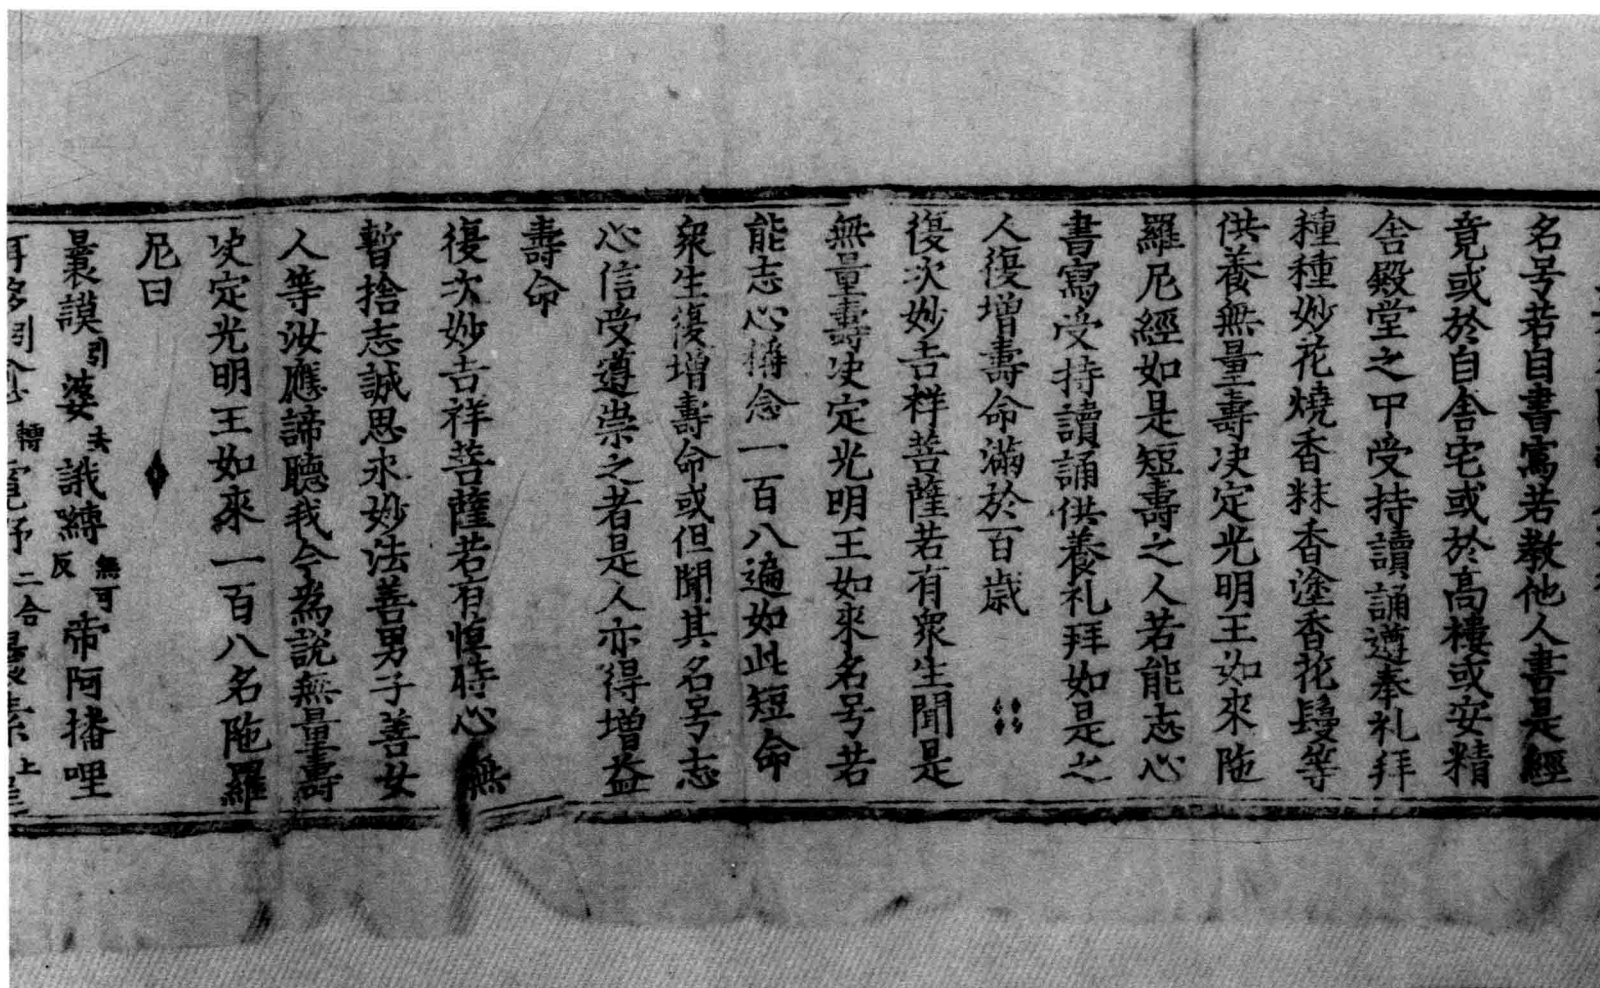 名号若自書寫若教他人書是經
竟或於自舎宅或於高樓或安精
舎殿堂之中受持讀誦遵奉礼拜
種種妙花燒香粖香塗香花鬘等
供養無量壽决定光明王如來陁
羅尼經如是短壽之人若能志心
書寫受持讀誦供養礼拜如是之
人復增壽命滿於百歳
復次妙吉祥菩薩若有衆生聞是
無量壽决定光明王如來名号若
能志心稱念一百八遍如此短命
衆生復增壽命或但聞其名号志
心信受遵崇之者是人亦得增益
壽命
復次妙吉祥菩薩若有恒時心無
暫捨志誠思求妙法善男子善女
人等汝應諦聽我今為說無量壽
决定光明王如來一百八名陁羅
尼曰
曩謨引婆去誐嚩無可反帝阿播哩